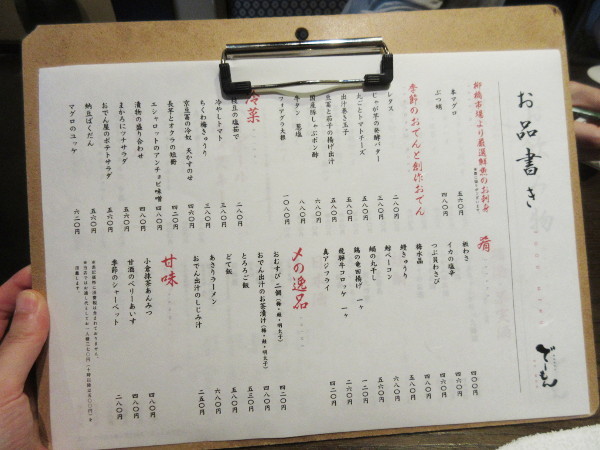 お品書き
柳橋市場より厳選鮮魚のお刺身
本マグロ 五六〇円
ぶつ蛸 四八〇円
季節のおでんと創作おでん
レタス 二八〇円
じゃが芋の発酵バター 三八〇円
丸ごとトマトチーズ 三八〇円
出汁巻き玉子 五八〇円
豆富と茄子の揚げ出汁 五八〇円
国産豚しゃぶポン酢 六八〇円
牛タン 葱塩 八八〇円
フォアグラ大根 一〇八〇円
冷菜
枝豆の塩茹で 二八〇円
冷やしトマト 三八〇円
ちくわ梅きゅうり 三八〇円
京豆富の冷奴 天かすのせ 四二〇円
長芋とオクラの短冊 四六〇円
エシャロットのアンチョビ味噌 四八〇円
漬物の盛り合わせ 四八〇円
まかろにツナサラダ 五六〇円
おでん屋のポテトサラダ 五六〇円
納豆ばくだん 五六〇円
マグロのユッケ 六二〇円
肴
板わさ 四〇〇円
イカの塩辛 四六〇円
つぶ貝わさび 四六〇円
梅水晶 四八〇円
鰻きゅうり 五八〇円
鮟ベーコン 六八〇円
鰯の丸干し 三八〇円
鶏の竜田揚げ 一ヶ 一二〇円
飛騨牛コロッケ 一ヶ 二六〇円
真アジフライ 四二〇円
〆の逸品
おむすび 二個(梅・鮭・明太子) 四二〇円
おでん出汁のお茶漬け(梅・鮭・明太子) 四八〇円
とろろご飯 五三〇円
どて飯 五八〇円
あさりラーメン 六八〇円
おでん出汁のしじみ汁 二五〇円
甘味
小倉抹茶あんみつ 四八〇円
甘酒のベリーあいす 三八〇円
季節のシャーベット 二八〇円